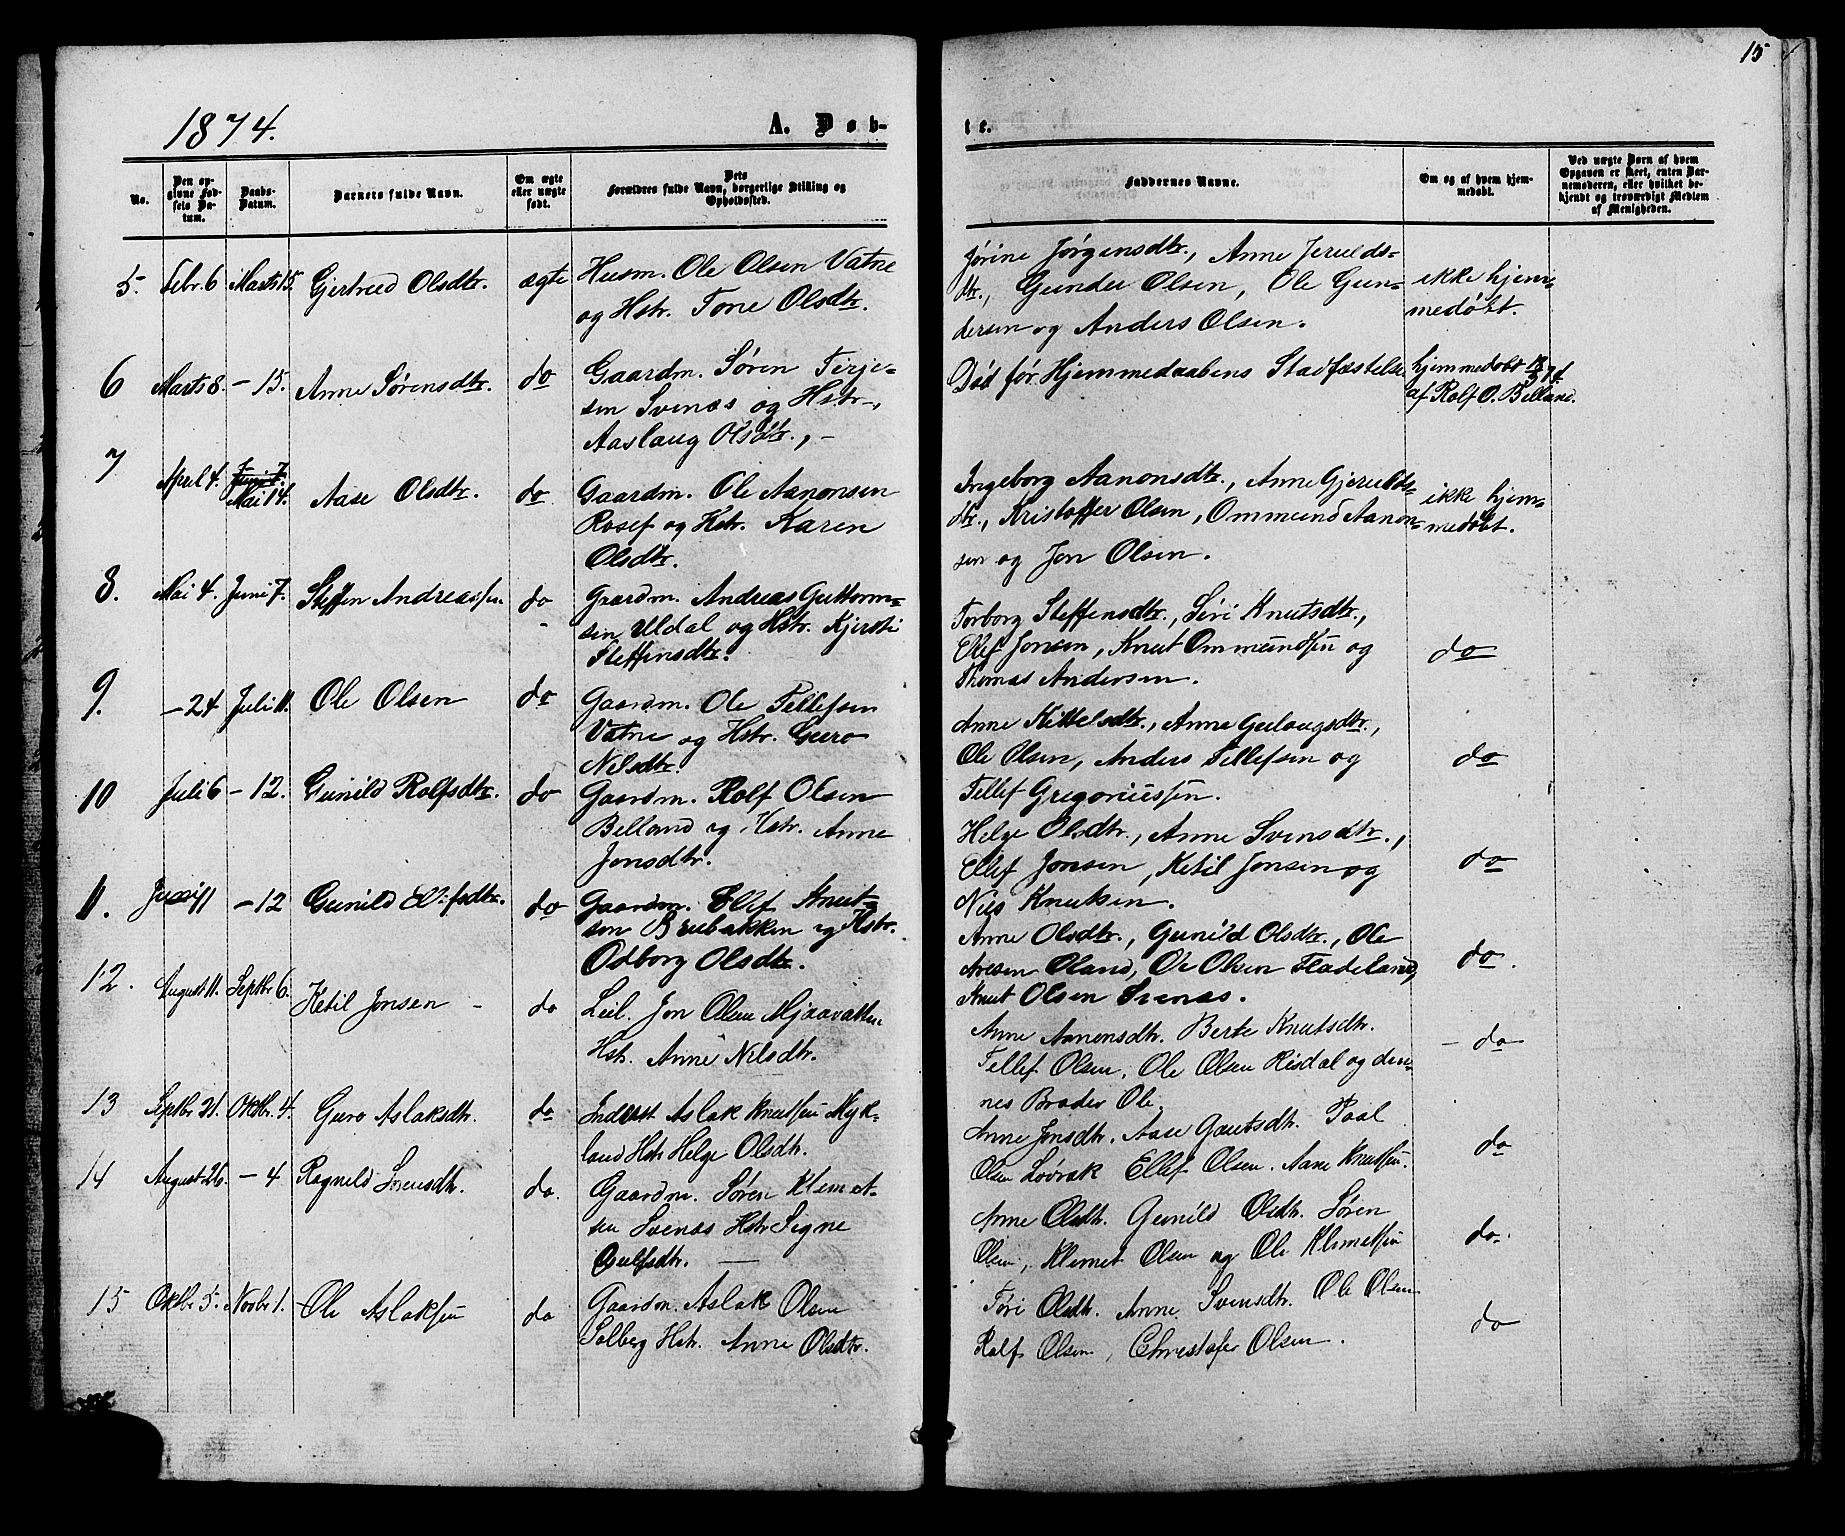 15
1874.
A. Døb-
te.
No.
Den op-
givne Fød-
sels Da-
tum.
Daabs-
Datum.
Barnets fulde Navn.
Om ægte
eller uægte
født.
Dets
Forældres fulde Navn, borgerlige Stilling og
Opholdssted.
Faddernes Navne.
Om og af hvem hjem-
medøbt.
Ved uægte Børn af hvem
Opgaven er skeet, enten Bar-
nemoderen, eller hvilket be-
kjendt og troværdigt Medlem
af Menigheden.
5. Febr. 6 Marts 15. Gjertrud Olsdtr. ægte
Husm. Ole Olsen Vatne
og Hstr. Tone Olsdtr.
Jørine Jørgensdtr., Anne Jerulds-
dtr., Gunder Olsen, Ole Gun-
dersen og Anders Olsen.
ikke hjem-
medøbt.
6 Marts 8. - 15. Anne Sørensdtr. do
Gaardm. Søren Terje-
sen Svenas og Hstr.,
Aaslaug Olsdtr., -
Død før Hjemmedaabens Stadfæstelse
hjemmedøbt
af Rolf O. Belland.
7 April 4. Juni 7.
Mai 14. Aase Olsdtr. do
Gaardm. Ole Aanonsen
Rosef og Hstr. Karen
Olsdtr.
Ingeborg Aanonsdtr., Anne Gjerulds-
dtr., Kristoffer Olsen, Ommund Aanon-
sen og Jon Olsen.
ikke hjem-
medøbt.
8. Mai 4. Juni 7. Steffen Andreassen do
Gaardm. Andreas Guttorm-
sen Uldal og Hstr. Kjersti
Steffensdtr.
Torborg Steffensdtr., Siri Knutsdtr.,
Ellef Jonsen, Knut Ommundsen og
Thomas Andersen.
do
9. - 24 Juli 11. Ole Olsen do
Gaardm. Ole Tellefsen
Vatne og Hstr. Guro
Nilsdtr.
Anne Kittelsdtr., Anne Gulaugsdtr.,
Ole Olsen, Anders Tellefsen og
Tellef Gregoriussen.
do
10 Juli 6 - 12. Gunild Rolfsdtr. do
Gaardm. Rolf Olsen
Belland og Hstr. Anne
Jonsdtr.
Helge Olsdtr., Anne Svensdtr.,
Ellef Jonsen, Ketil Jonsen og
Nils Knutsen.
do
11. - 12 Gunild Ellefsdtr. do
Gaardm. Ellef Knut-
sen Brubakken og Hstr.
Odborg Olsdtr.
Anne Olsdtr., Gunild Olsdtr., Ole
Aresen Oland, Ole Olsen Fladeland,
Knut Olsen Svenas.
do.
12. August 11. Septbr 6. Ketil Jonsen - do
Leil. Jon Olsen Mjaavatten
Hstr. Anne Nilsdtr.
Anne Aanonsdtr. Berte Knutsdtr.
Tellef Olsen, Ole Olsen Risdal og den-
nes Broder Ole.
- do
13 Septbr 21. Oktbr. 4. Guro Aslaksdtr. do
Inderst Aslak Knutsen Myk-
land Hstr Helge Olsdtr.
Anne Jonsdtr. Aase Gautsdtr. Paal
Olsen Løvrak Ellef Olsen. Aane Knutsen.
do
14 August 26. - 4 Ragnild Sørensdtr. do.
Gaardm. Søren Klemet-
sen Svenas Hstr Signe
Gulfsdtr.
Anne Olsdtr. Gunild Olsdtr. Søren
Olsen, Klemet Olsen og Ole Klemetsen
do.
15 Oktbr 5. Novbr 1. Ole Aslaksen do
Gaardm. Aslak Olsen
Solberg Hstr. Anne Olsdtr.
Tøri Olsdtr. Anne Svensdtr. Ole Olsen
Rolf Olsen, Christofer Olsen.
do